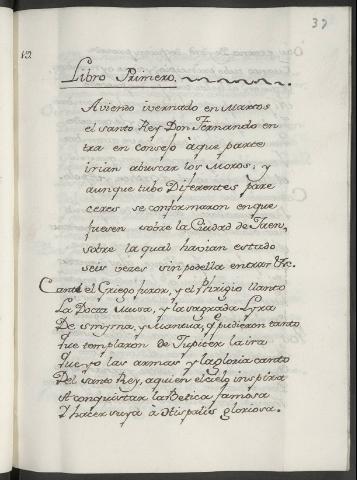 37
12
Libro Primero.
Aviendo ivernado en Marcos
el santo Rey Don Fernando en
tra en consejo à que parte
irian abuscar los Moros, y
aunque tubo Diferentes pare
ceres se conformaron en que
fuesen sobre la Ciudad de Jaen,
sobre la qual havian estado
seis vezes sin podella entrar &c.
Cante el Griego furor, y el Phrigio llanto
La Docta Musa, y la sagrada Lyra
De Smyrna, y Mantua, q pudieron tanto
que templaron de Jupiter la ira
que yo las armas y la gloria canto
Del santo Rey, a quien el cielo inspira
A conquistar la Betica famosa
Y hacer suya à Hispalis gloriosa.